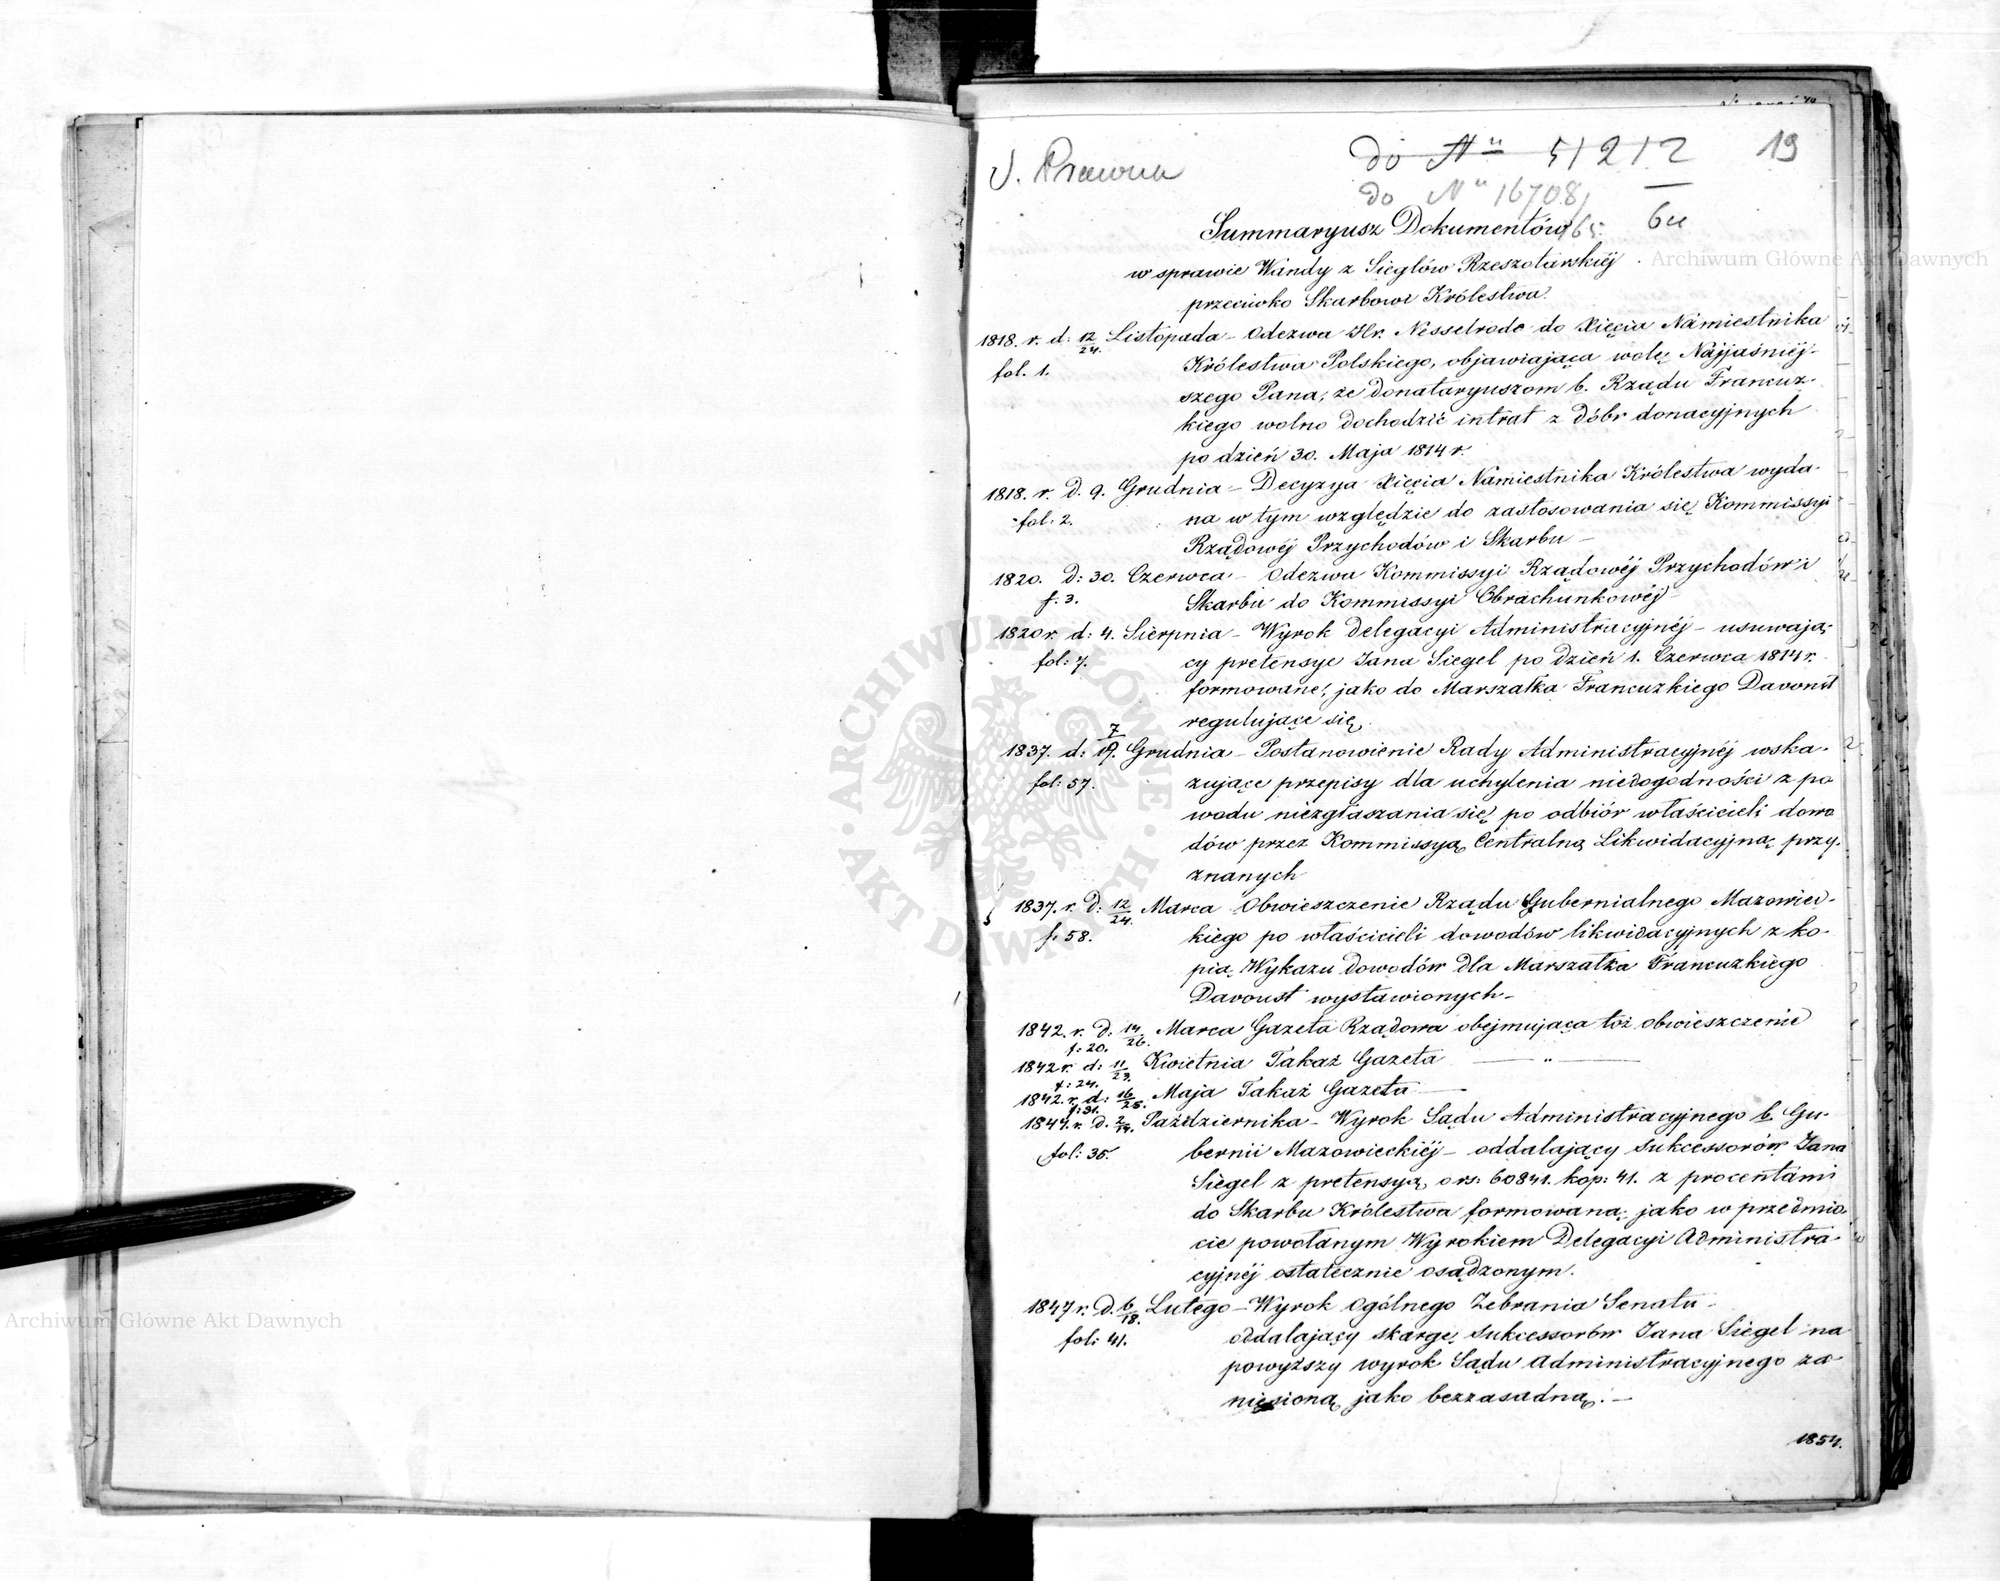 S. Prawna
do Nu 51212
19
do Nu 16708/65.
64
Summaryusz Dokumentów
w sprawie Wandy z Sieglów Rzeszotarskiéj
przeciwko Skarbowi Królestwa.
1818. r. d: 12/24. Listopada – Odezwa Hr. Nesselrode do Xięcia Namiestnika
fol. 1. Królestwa Polskiego, objawiająca wolę Najjaśniéj-
szego Pana, że donataryuszom b. Rządu Francuz-
kiego wolno dochodzić intrat z dóbr donacyjnych
po dzień 30. Maja 1814 r.
1818. r. d. 9. Grudnia – Decyzya Xięcia Namiestnika Królestwa wyda-
fol. 2. na w tym względzie do zastosowania się Kommissyi
Rządowéj Przychodów i Skarbu –
1820. d: 30. Czerwca – Odezwa Kommissyi Rządowéj Przychodów i
f. 3. Skarbu do Kommissyi Obrachunkowéj
1820 r. d: 4. Sierpnia – Wyrok Delegacyi Administracyjnéj – usuwają-
fol: 7. cy pretensye Jana Siegel po dzień 1. Czerwca 1814 r.
formowane, jako do Marszałka Francuzkiego Davoust
regulujące się.
1837. d: 7/19. Grudnia – Postanowienie Rady Administracyjnéj wska-
fol: 57. zujące przepisy dla uchylenia niedogodności z po
wodu niezgłaszania się po odbiór właścicieli dowo
dów przez Kommissyą Centralną Likwidacyjną przy-
znanych
1837. r. d: 12/24. Marca Obwieszczenie Rządu Gubernialnego Mazowiec-
f. 58. kiego po właścicieli dowodów likwidacyjnych z ko-
pią Wykazu dowodów dla Marszałka Francuzkiego
Davoust wystawionych –
1842. r. d: 14/26. Marca Gazeta Rządowa obejmująca toż obwieszczenie
f: 20.
1842 r. d: 11/23. Kwietnia Takaż Gazeta — „ —
f: 24.
1842. r. d: 16/28. Maja Takaż Gazeta —
f: 31.
1847. r. d. 2/14. Października – Wyrok Sądu Administracyjnego b. Gu-
fol: 35. bernii Mazowieckiéj – oddalający Sukcessorów Jana
Siegel z pretensyą o rs: 60841. kop: 41. z procentami
do Skarbu Królestwa formowaną, jako w przedmio
cie powołanym Wyrokiem Delegacyi Administra-
cyjnéj ostatecznie osądzonym.
1847 r. d. 6/18. Lutego – Wyrok Ogólnego Zebrania Senatu
fol: 41. oddalający skargę Sukcessorów Jana Siegel na
powyższy wyrok Sądu Administracyjnego za
niesioną jako bezzasadną. –
1854.
Archiwum Główne Akt Dawnych
Archiwum Główne Akt Dawnych
ARCHIWUM GŁÓWNE AKT DAWNYCH